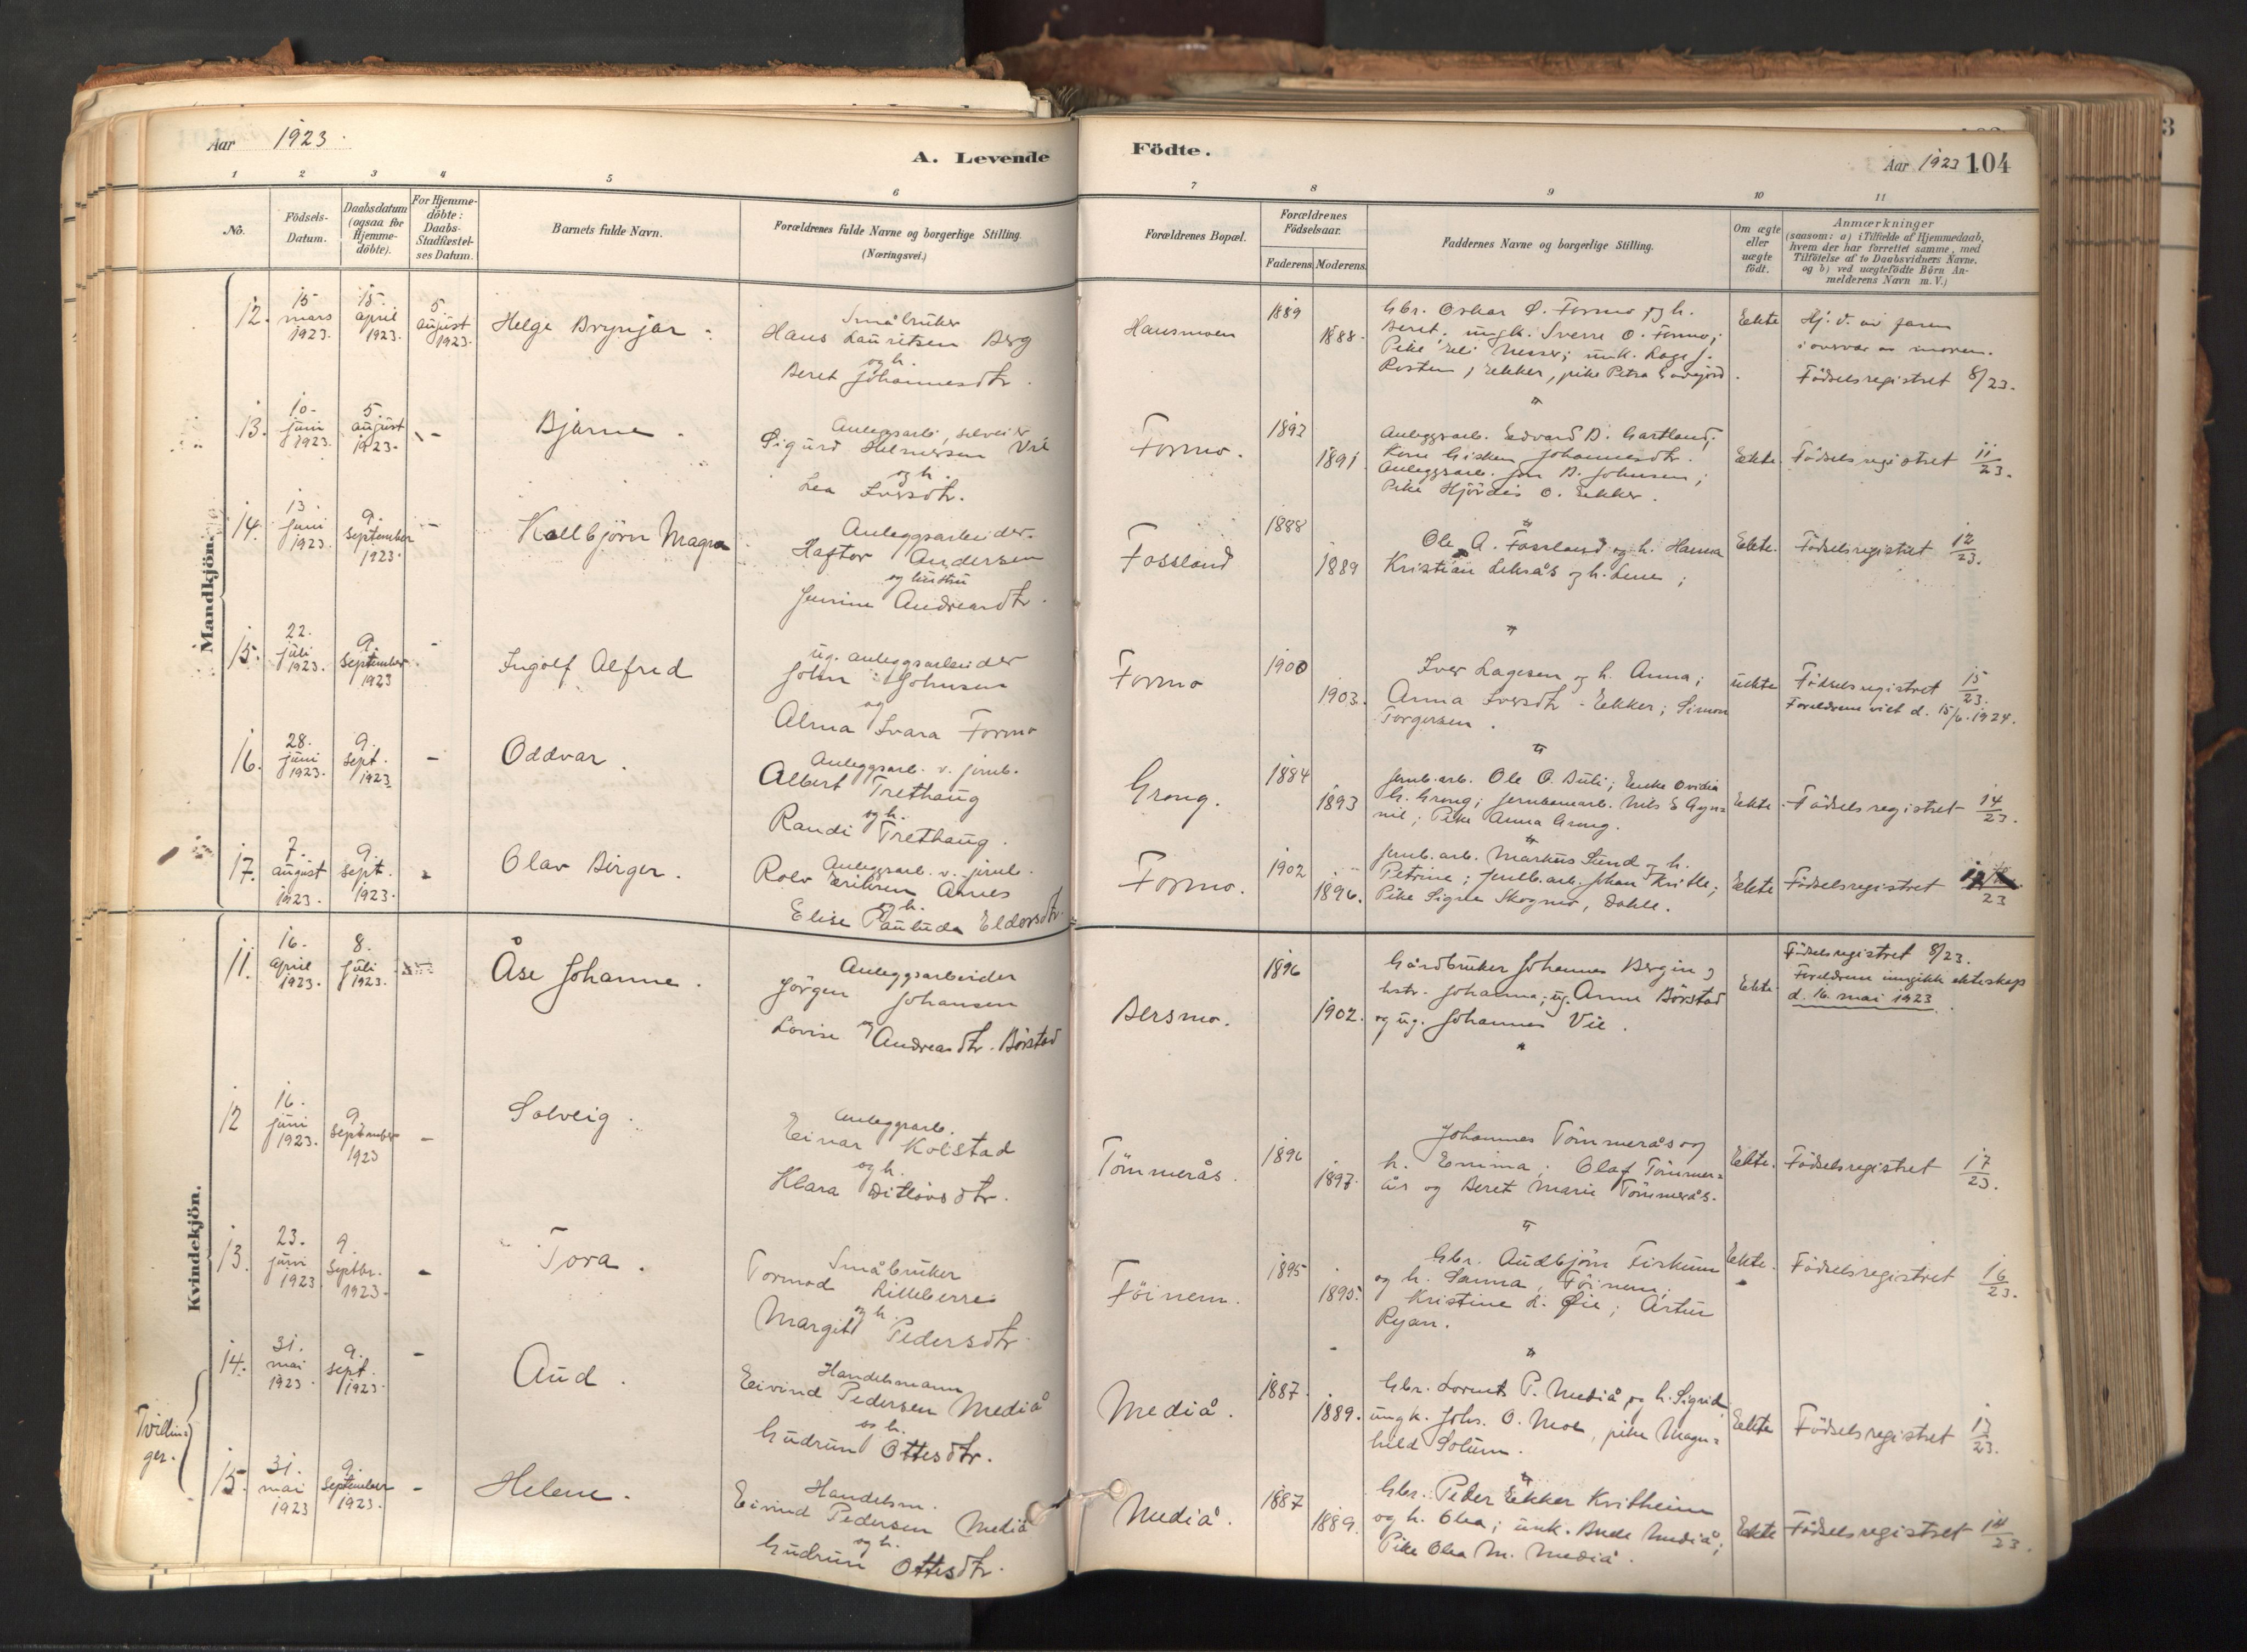 Aar 1923.
A. Levende
Födte.
Aar 1923 104
1 2 3 4 5 6 7 8 9 10 11
No.
Födsels-
Datum.
Daabsdatum
(ogsaa for
Hjemme-
döbte).
For Hjemme-
döbte:
Daabs-
Stadfæstel-
ses Datum.
Barnets fulde Navn.
Forældrenes fulde Navne og borgerlige Stilling.
(Næringsvei.)
Forældrenes Bopæl.
Forældrenes
Födselsaar.
Faderens. Moderens.
Faddernes Navne og borgerlige Stilling.
Om ægte
eller
uægte
födt.
Anmærkninger
(saasom: a) i Tilfælde af Hjemmedaab,
hvem der har forrettet samme, med
Tilföielse af to Daabsvidners Navne,
og b) ved uægtefödte Börn An-
melderens Navn m. V.)
Mandkjön.
12.
15
mars
1923.
15.
april
1923.
5.
august
1923.
Helge Brynjar.
Småbruker
Hans Lauritsen Berg
og h.
Beret Johannesdtr.
Hansmoen
1889
1888.
Gbr. Oskar O. Formo og h.
Beret. ungk. Sverre O. Formo;
Ekte
Hj. d. av faren
i overvær av moren.
Födselsregistret 8/23.
13.
10.
juni
1923.
5.
august
1923.
Bjarne.
Sigurd Helmersen Vie
og h.
Lea Iversdtr.
Formo.
1893
1891.
Anleggsarb. Edvard D. Gartland;
Kone Gisken Johannesdtr.
Anleggsarb. Jon B. Johnsen;
Pike Hjördis O. Ekker.
Ekte.
Födselsregistret 11/23.
14.
13.
juni
1923.
9.
september
1923.
-
Kolbjörn Magna
Anleggsarbeider.
Haftor Andersen
og hustru
Jenrine Andreasdtr.
Fossland
1888
1889
Ole A. Fossland og h. Hanna
Kristian Leksås og h. Lene;
Ekte.
Födselsregistret 12/23.
15.
22.
juli
1923.
9.
september
1923
-
Ingolf Alfred
ug. anleggsarbeider
John Johnsen
og
Alma Ivara Formo
Formo
1900
1903.
Iver Lagesen og h. Anna;
Anna Iversdtr. Ekker; Simon
Torgersen.
uekte
Födselsregistret 15/23.
Foreldrene viet d. 15/6. 1924.
16.
28.
juni
1923.
9.
sept.
1923
-
Oddvar.
Anleggsarb. v. jernb.
Albert Trethaug
og h.
Randi Trethaug.
Grong.
1884
1893
Jernb.arb. Ole O. Buli; Enke Ovidia
G. Grong; jernbanearb. Nils E Gyn-
nil; Pike Anna Grong.
Ekte.
Födselsregistret 14/23.
17.
7.
august
1923.
9.
sept.
1923.
Olav Birger.
Anleggsarb. v. jernb.
Rolv Eriksen Aunes
og h.
Elise Pauluda Eldorsdtr.
Formo.
1902
1896.
Jernb.arb. Markus Sund og h.
Petrine; jernb.arb. Johan Kvitle;
Pike Signe Skogmo, Dahle.
Ekte
Födselsregistret
Kvindekjön.
11.
16.
april
1923.
8.
juli
1923.
Åse Johanne.
Anleggsarbeider
Jörgen Johansen
og
Lovise Andreasdtr. Börstad
Bersmo.
1896
1902.
Gårdbruker Johannes Bergin og
hstr. Johanna; ug. Anne Börstad
og ug. Johannes Vie.
Ekte
Födselsregistret 8/23.
Foreldrene inngikk ekteskap
d. 16. mai 1923.
12
16.
juni
1923.
9.
september
1923
-
Solveig.
Anleggsarb.
Einar Kolstad
og h.
Klara Ditlovsdtr.
Tömmerås.
1896
1897.
Johannes Tömmerås og
h. Emma; Olaf Tömmer-
ås og Beret Marie Tömmerås.
Ekte.
Födselsregistret 17/23.
13.
23.
juni
1923
9.
Septbr.
1923.
-
Tora.
Småbruker
Tormod Lilleberre
og h.
Margit Pedersdtr.
Föinem.
1895
1895.
Gbr. Audbjörn Fiskum
og h. Sanna, Föinem;
Kristine L. Øie; Artur
Ryan.
Ekte.
Födselsregistret 16/23.
Tvillin-
ger.
14.
31.
mai
1923.
9.
sept.
1923.
-
Aud.
Handelsmann
Eivind Pedersen Mediå
og h.
Gudrun Ottesdtr.
Mediå.
1887.
1889.
Gbr. Lornts P. Mediå og h. Sigrid;
ungk. Johs. O. Moe, pike Magn-
hild Solum.
Ekte
Födselsregistret 13/23.
15.
31.
mai
1923
9.
september
1923.
-
Helene.
Handelsm.
Eivind Pedersen Mediå
og h.
Gudrun Ottesdtr.
Mediå.
1887
1889.
Gbr. Peder Ekker Kvitheim
og h. Olea; unk. Mediå;
Pike Olea M. Mediå.
Ekte
Födselsregistret 14/23.